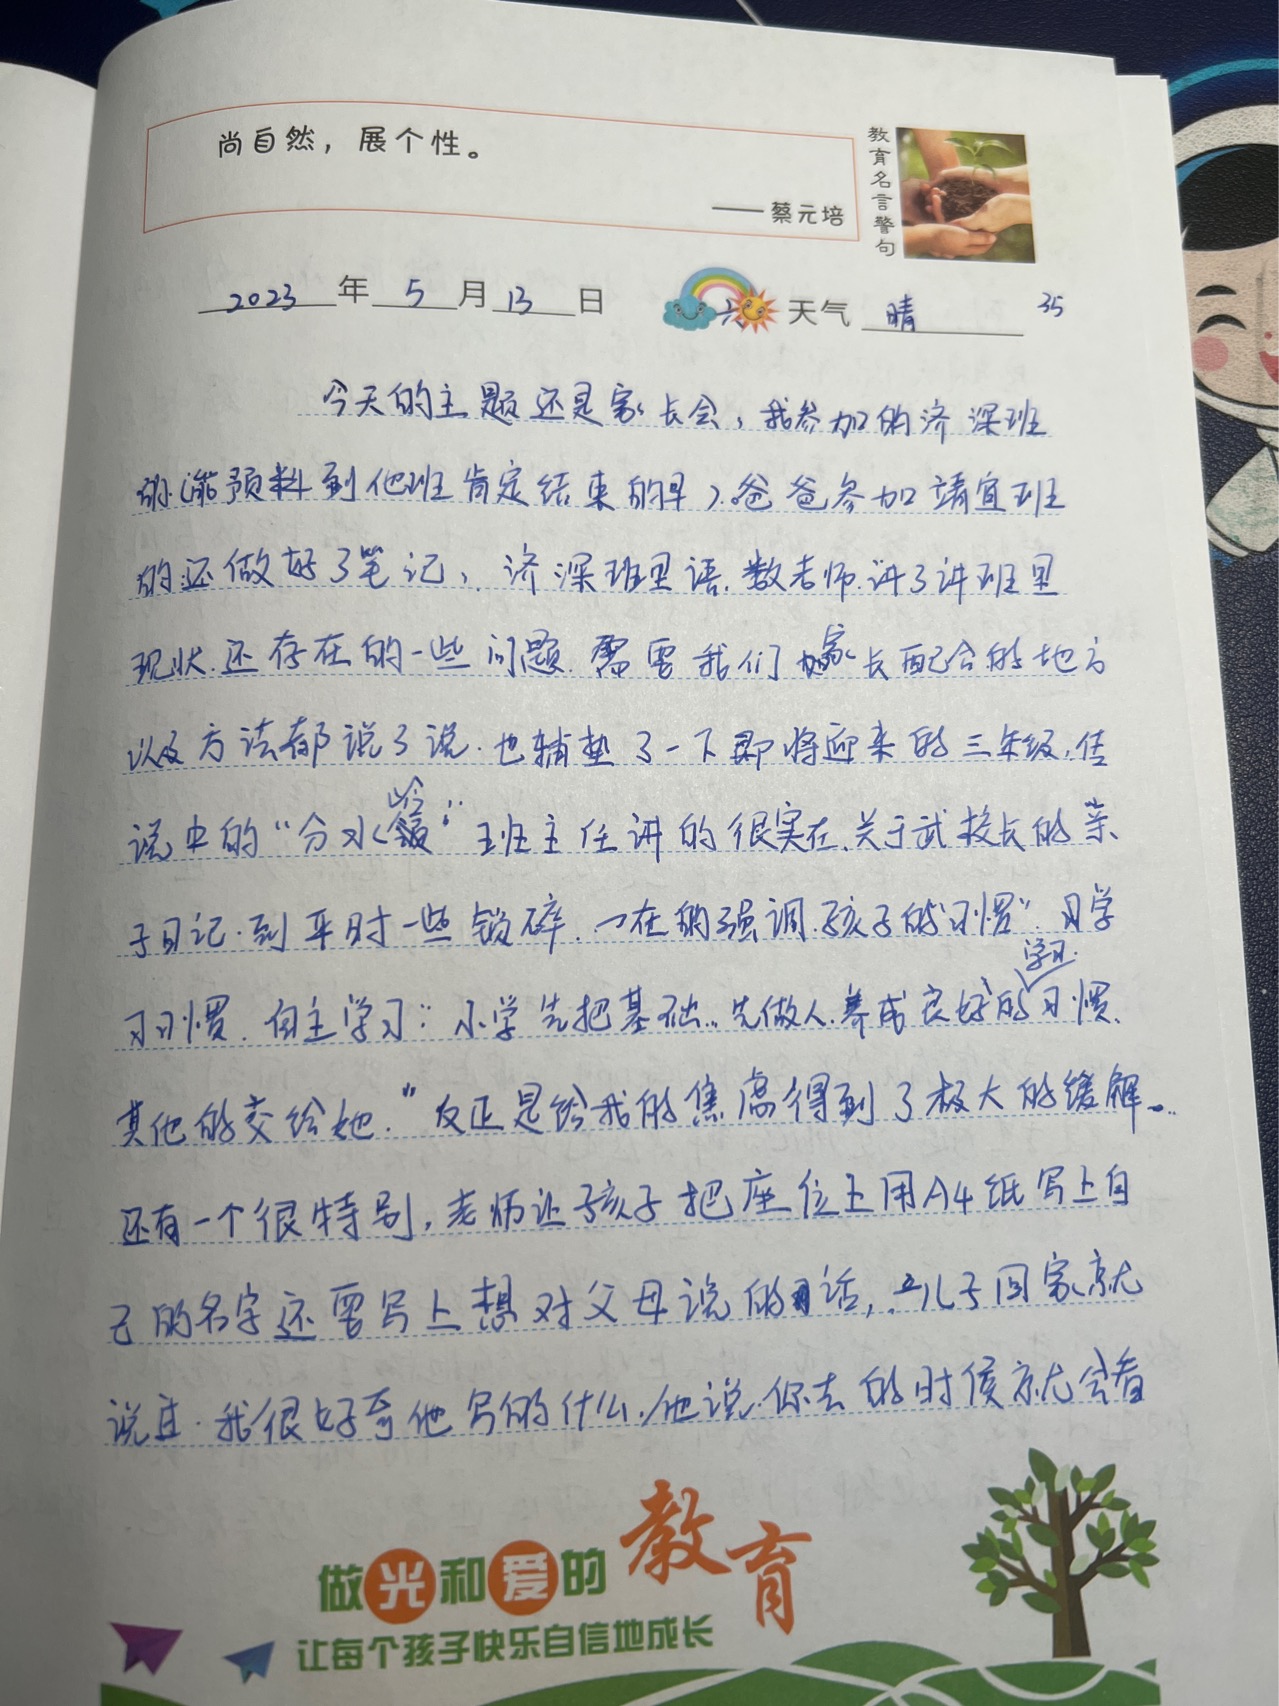 尚自然，展个性。
——蔡元培
教育名言警句
2023年5月13日 六 天气 晴 35
今天的主题还是家长会，我参加的济深班
的(能预料到他班肯定结束的早)爸爸参加靖宜班
的还做好了笔记，济深班里语.数老师.讲了讲班里
现状.还存在的一些问题.需要我们家长配合的地方
以及方法都说了说.也铺垫了一下即将迎来的三年级,传
说中的“分水岭”班主任讲的很实在.关于武校长的亲
子日记.到平时一些锁碎.一在的强调.孩子的“习惯”.
习习惯.自主学习：小学先把基础..先做人.养成良好的学习习惯.
其他的交给她.”反正是给我的焦虑得到了极大的缓解...
还有一个很特别,老师让孩子把座位上用A4纸写上自
己的名字还要写上想对父母说的话,儿子回家就
说.我很好奇他写的什么.他说.你去的时侯就会看
做光和爱的教育
让每个孩子快乐自信地成长